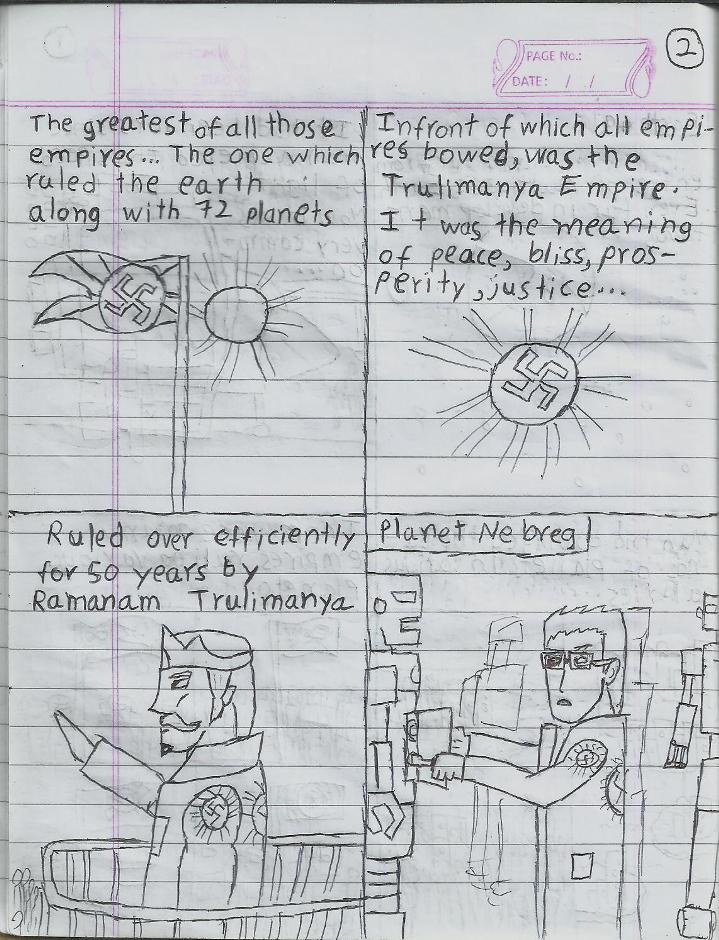 PAGE No.:
DATE: / /
2
The greatest of all those
empires... The one which
ruled the earth
along with 72 planets
Infront of which all empi-
res bowed, was the
Trulimanya Empire.
It was the meaning
of peace, bliss, pros-
perity, justice...
Ruled over efficiently
for 50 years by
Ramanam Trulimanya
Planet Nebreg